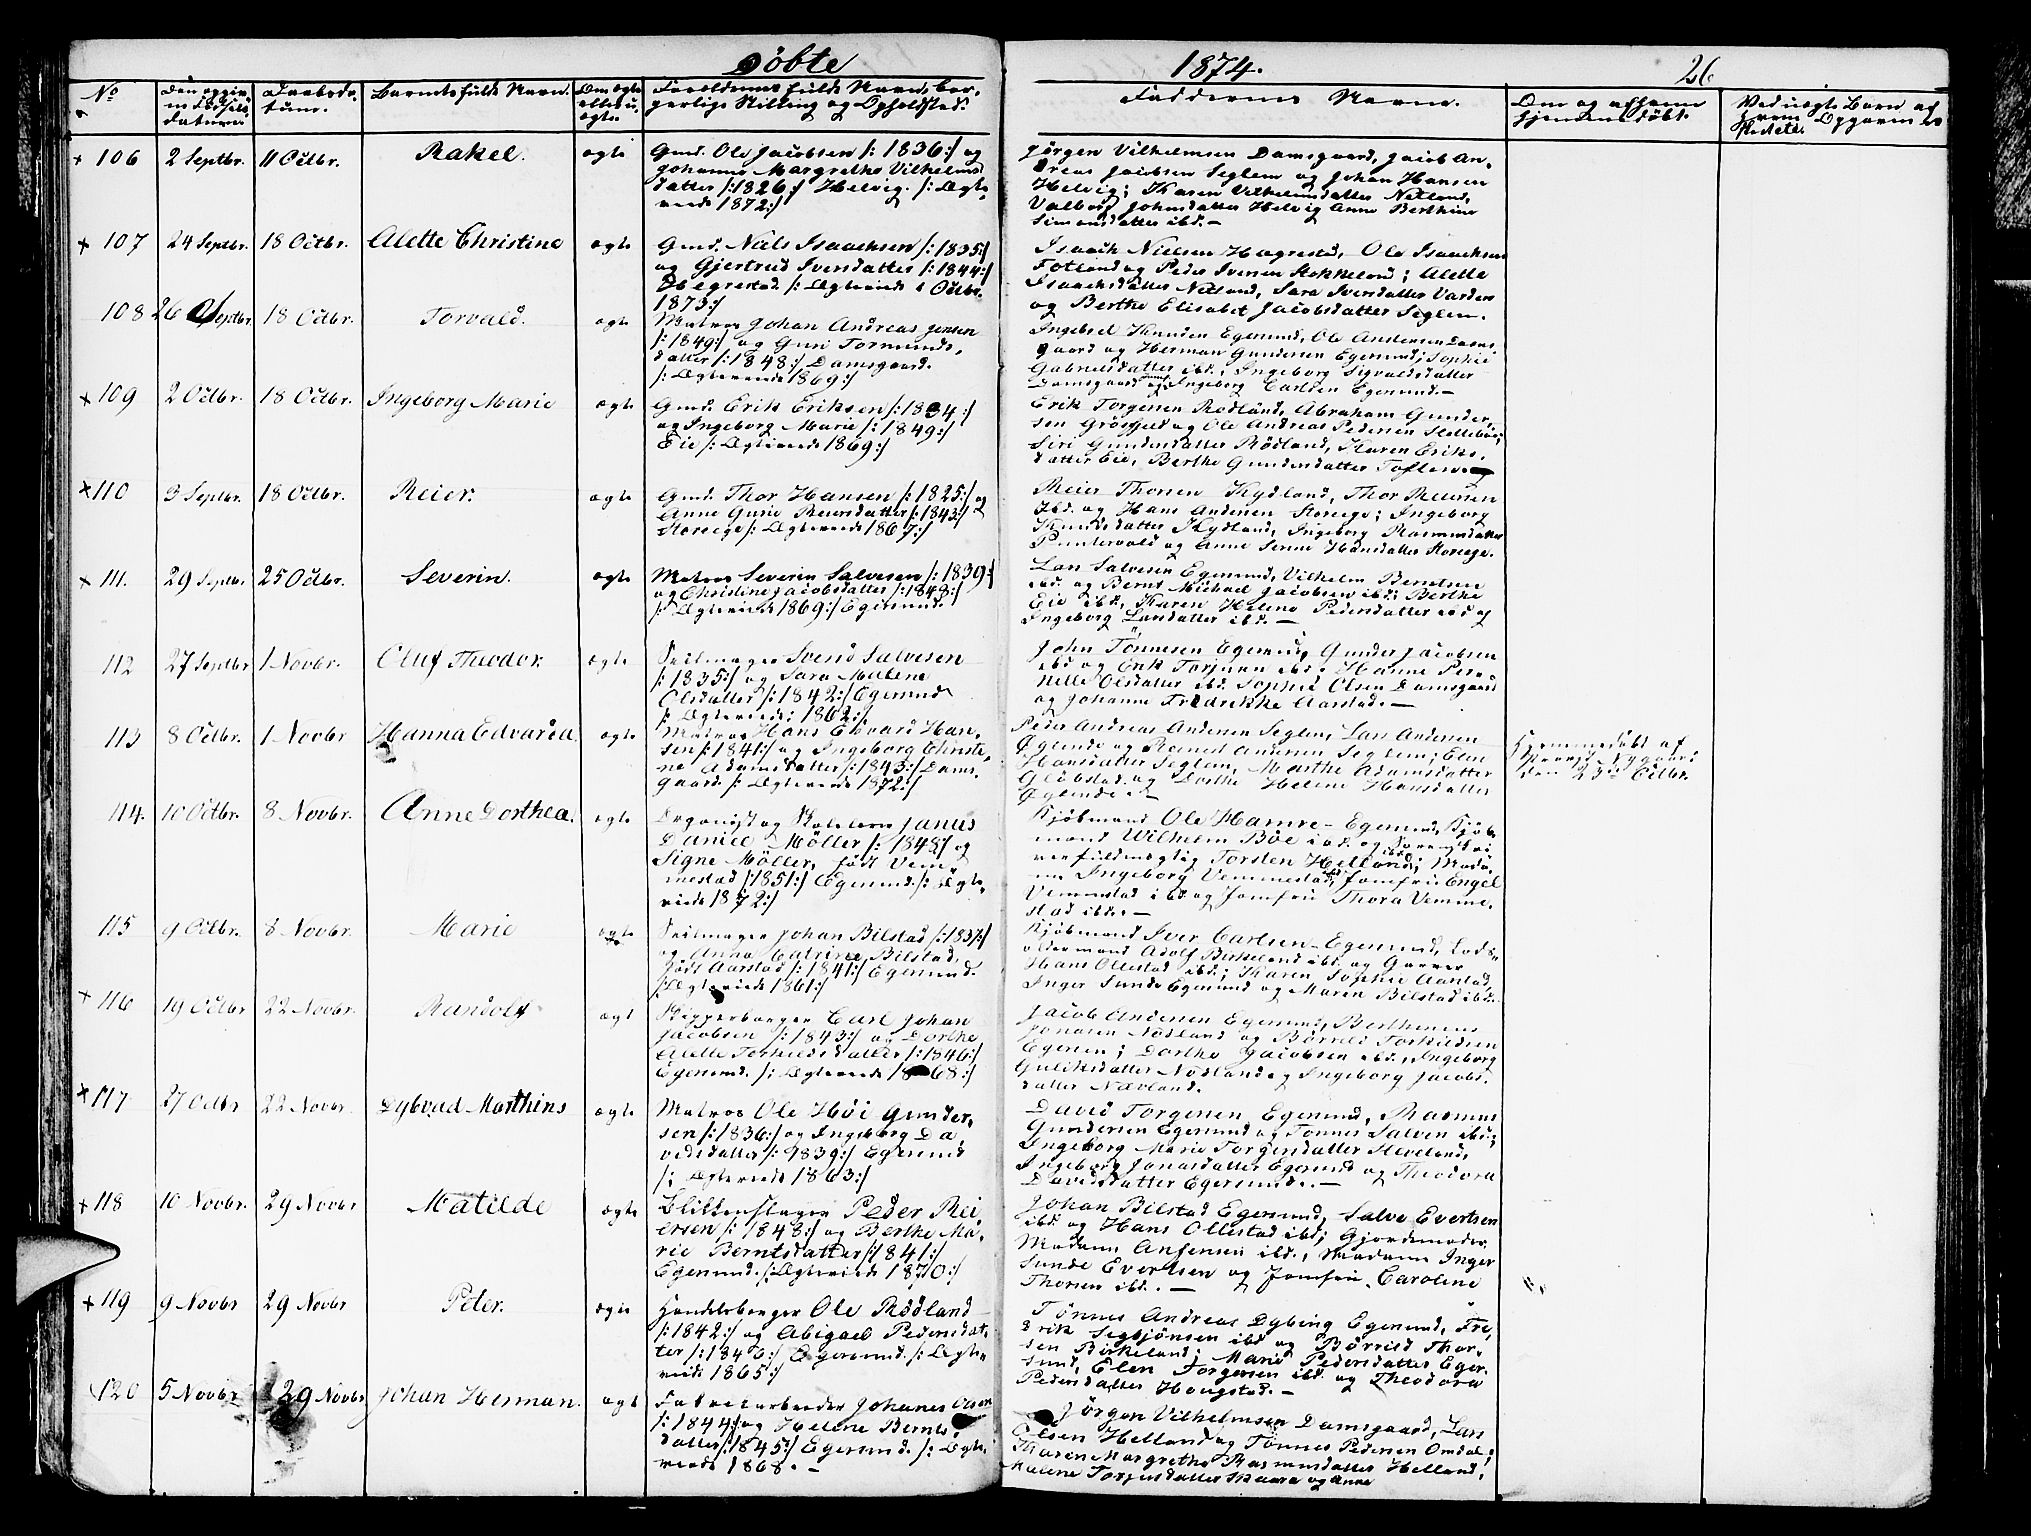 Døbte
1874.
26
No
Den opgivne Fødselsdatum.
Daabsdatum.
Barnets fulde Navn.
Om ægte eller uægte.
Forældrenes fulde Navn, borgerlige Stilling og Opholdssted.
Faddernes Navne.
Om og af hvem hjemmedøbt.
106 2 Septbr. 11 Octbr. Rakel. ægte
Gmd. Ole Jacobsen /: 1836:/ og
Johanne Margrethe Vilhelms
datter /:1826:/ Helvig. /: Ægte
viede 1872:/
Jørgen Vilhelmsen Damsgaard, Jacob An-
dreas Jacobsen Seglem og Johan Hansen
Helvig; Karen Vilhelmsdatter Netland,
Valborg Johnsdatter Helvig Anne Berthine
Simonsdatter ibd. –
107 24 Septbr. 18 Octbr. Alette Christine ægte
Gmd. Niels Isaachsen /: 1835:/
og Gjertrud Iversdatter /: 1844:/
Hegrestad. /: Ægteviede i Octbr.
1873:/
Isaach Nielsen Hægrestad, Ole Isaachsen
Fotland og Peder Iversen Stokkeland; Alette
Isaachsdatter Netland, Sara Iversdatter Varden
og Berthe Elisabet Jacobsdatter Seglem.
108 26 Septbr. 18 Octbr. Torvald. ægte
Matros Johan Andreas Jensen
/: 1849:/ og Guri Tormunds
datter /: 1848:/ Damsgaard.
/: Ægteviede 1869:/
Ole Andersen Dams
gaard og Herman Gundersen Egersund; Sophie
Gabrielsdatter ibd., Ingeborg Sigvaldsdatter
Damsgaard og Ingeborg Carlsen Egersund. –
109 2 Octbr. 18 Octbr. Ingeborg Marie ægte
Gmd. Erik Eriksen /: 1834:/
og Ingeborg Marie /: 1849:/
Eie /: Ægteviede 1869:/
Erik Torgersen Rødland, Abraham Gunder-
sen Grøsfjeld og Ole Andreas Pedersen
Siri Gundersdatter Rødland, Karen Eriks-
datter Eie, Berthe Gundersdatter
110 3 Septbr. 18 Octbr. Reier. ægte
Gmd. Thor Hansen /: 1825:/ og
Anne Gurie Reiersdatter /: 1843:/
Storeege /: Ægteviede 1867:/
Reier Thorsen Kydland, Thor Reiersen
ibd. og Hans Andersen Storeege; Ingeborg
Knudsdatter Kydland, Ingeborg Rasmusdatter
Puntervold og Anne Serine Hansdatter Storeege.
111. 29 Septbr. 25 Octbr. Severin. ægte
Matros Severin Salvesen /: 1839:/
og Christine Jacobsdatter /: 1848:/
/: Ægteviede 1869:/ Egersund.
Lars Salvesen Egersund, Vilhelm Berntsen
ibd. og Bernt Michael Jacobsen ibd; Berthe
Eie ibd., Karen Helene Pedersdatter ibd og
Ingeborg Larsdatter ibd. –
112 27 Septbr 1 Novbr. Oluf Theodor. ægte
Seilmager Svend Salvesen
/: 1835:/ og Sara Malene
Olsdatter /: 1842:/ Egersund
/: Ægteviede: 1862:/
John Tønnesen Egersund, Gunder Jacobsen
ibd og Erik Torjusen ibd.; Hanne Per-
nelle Olsdatter ibd. Sophie Olsen Damsgaard
og Johanne Fredrikke Aarstad. –
113 8 Octbr. 1 Novbr Hanna Edvarda ægte
Matros Hans Edvard Han-
sen /: 1841:/ og Ingeborg Christi-
ne Adamsdatter /: 1843:/ Dams-
gaard /: Ægteviede 1872:/
Peder Andreas Andersen Seglem, Lars Andersen
Øglende og Reinert Andersen Seglem; Elen
Hansdatter Seglem, Marthe Adamsdatter
og Dorthe Helene Hansdatter
Øglende. –
Hjemmedøbt af
Provst Nygaard
den 23de Octbr.
114. 10 Octbr. 8 Novbr. Anne Dorthea. ægte
Organist og Skolelærer Janus
Daniel Møller /: 1848:/ og
Signe Møller, født Vem
mestad /:1851:/ Egersund. /: Ægte-
viede 1872:/
Kjøbmand Ole Hamre – Egersund, Kjøb-
mand Wilhelm Bøe ibd. og Sorenskri
verfuldmægtig Torsten Helland ibd; Mada
me Ingeborg Vemmestad ibd, Jomfru Engel
Vemmestad ibd og Jomfru Thora Vemme-
stad ibd. –
115 9 Octbr. 8 Novbr. Marie ægte
Seilmager Johan Bilstad /:1837:/
og Anna Catrine Bilstad,
født Aarstad /: 1841:/ Egersund.
/: Ægteviede 1861:/
Kjøbmand Iver Carlsen – Egersund, Lods-
oldermand Adolf Birkeland ibd. og Garver
Hans Ollestad ibd.; Karen Sophie Aarstad,
Inger Sunde Egersund og Maren Bilstad ibd.
116 19 Octbr 22 Novbr. Randolf ægte
Skipperborger Carl Johan
Jacobsen /: 1843:/ og Dorthe
Alette Torkildsdatter /: 1846:/
Egersund. /: Ægteviede 1868:/
Jacob Andersen Egersund, Berthinius
Jonasen Nødland og Børrild Torkildsen
Egersun; Dorthe Jacobsen ibd., Ingeborg
Guliksdatter Nødland og Ingeborg Jacobs-
datter Nævland.
117 27 Octbr 22 Novbr. Dybvad Marthins ægte
Matros Ole Høi Gunder-
sen /: 1836:/ og Ingeborg Da-
vidsdatter /: 1839:/ Egersund
/: Ægteviede 1863:/
David Torgersen Egersund, Rasmus
Gundersen Egersund og Tønnes Salvesen ibd;
Ingeborg Marie Torgersdatter Steveland,
Ingeborg Jonasdatter Egersund og Theodora
Davidsdatter Egersund. –
118 10 Novbr. 29 Novbr Matilde ægte
Blikkenslager Peder Rei
ersen /: 1848:/ og Berthe Ma-
rie Berntsdatter /:1841:/
Egersund. /: Ægteviede 1870:/
Johan Bilstad Egersund, Salve Evertsen
ibd og Hans Ollestad ibd; Gjordemoder
Madam Ansensen ibd., Madame Inger
Sunde Evertsen og Jomfru Caroline
Thorsen ibd. –
119 9 Novbr 29 Novbr Peter. ægte
Handelsborger Ole Rødland
/: 1842:/ og Abigael Pedersdat-
ter /: 1846:/ Egersund. /: Ægte-
viede 1865:/
Tønnes Andreas Dybing Egersund, Fre-
drik Segbjørnsen ibd og Børrild Thor-
sen Birkeland; Marie Pedersdatter Eger-
sund, Elen Torgersen ibd. og Theodora
Pedersdatter Hougstad. –
120 5 Novbr 29 Novbr Johan Herman. ægte
Fabrikarbeider Johanes Olsen
/: 1844:/ og Helene Bernts-
datter /: 1845:/ Egersund. /: Ægte-
viede 1868. –
Jørgen Vilhelmsen Damsgaard, Lars
Olsen Helland og Tønnes Pedersen Omdal;
Maren Margrethe Rasmusdatter Helland,
Malene Torgersdatter Skaara og Anne